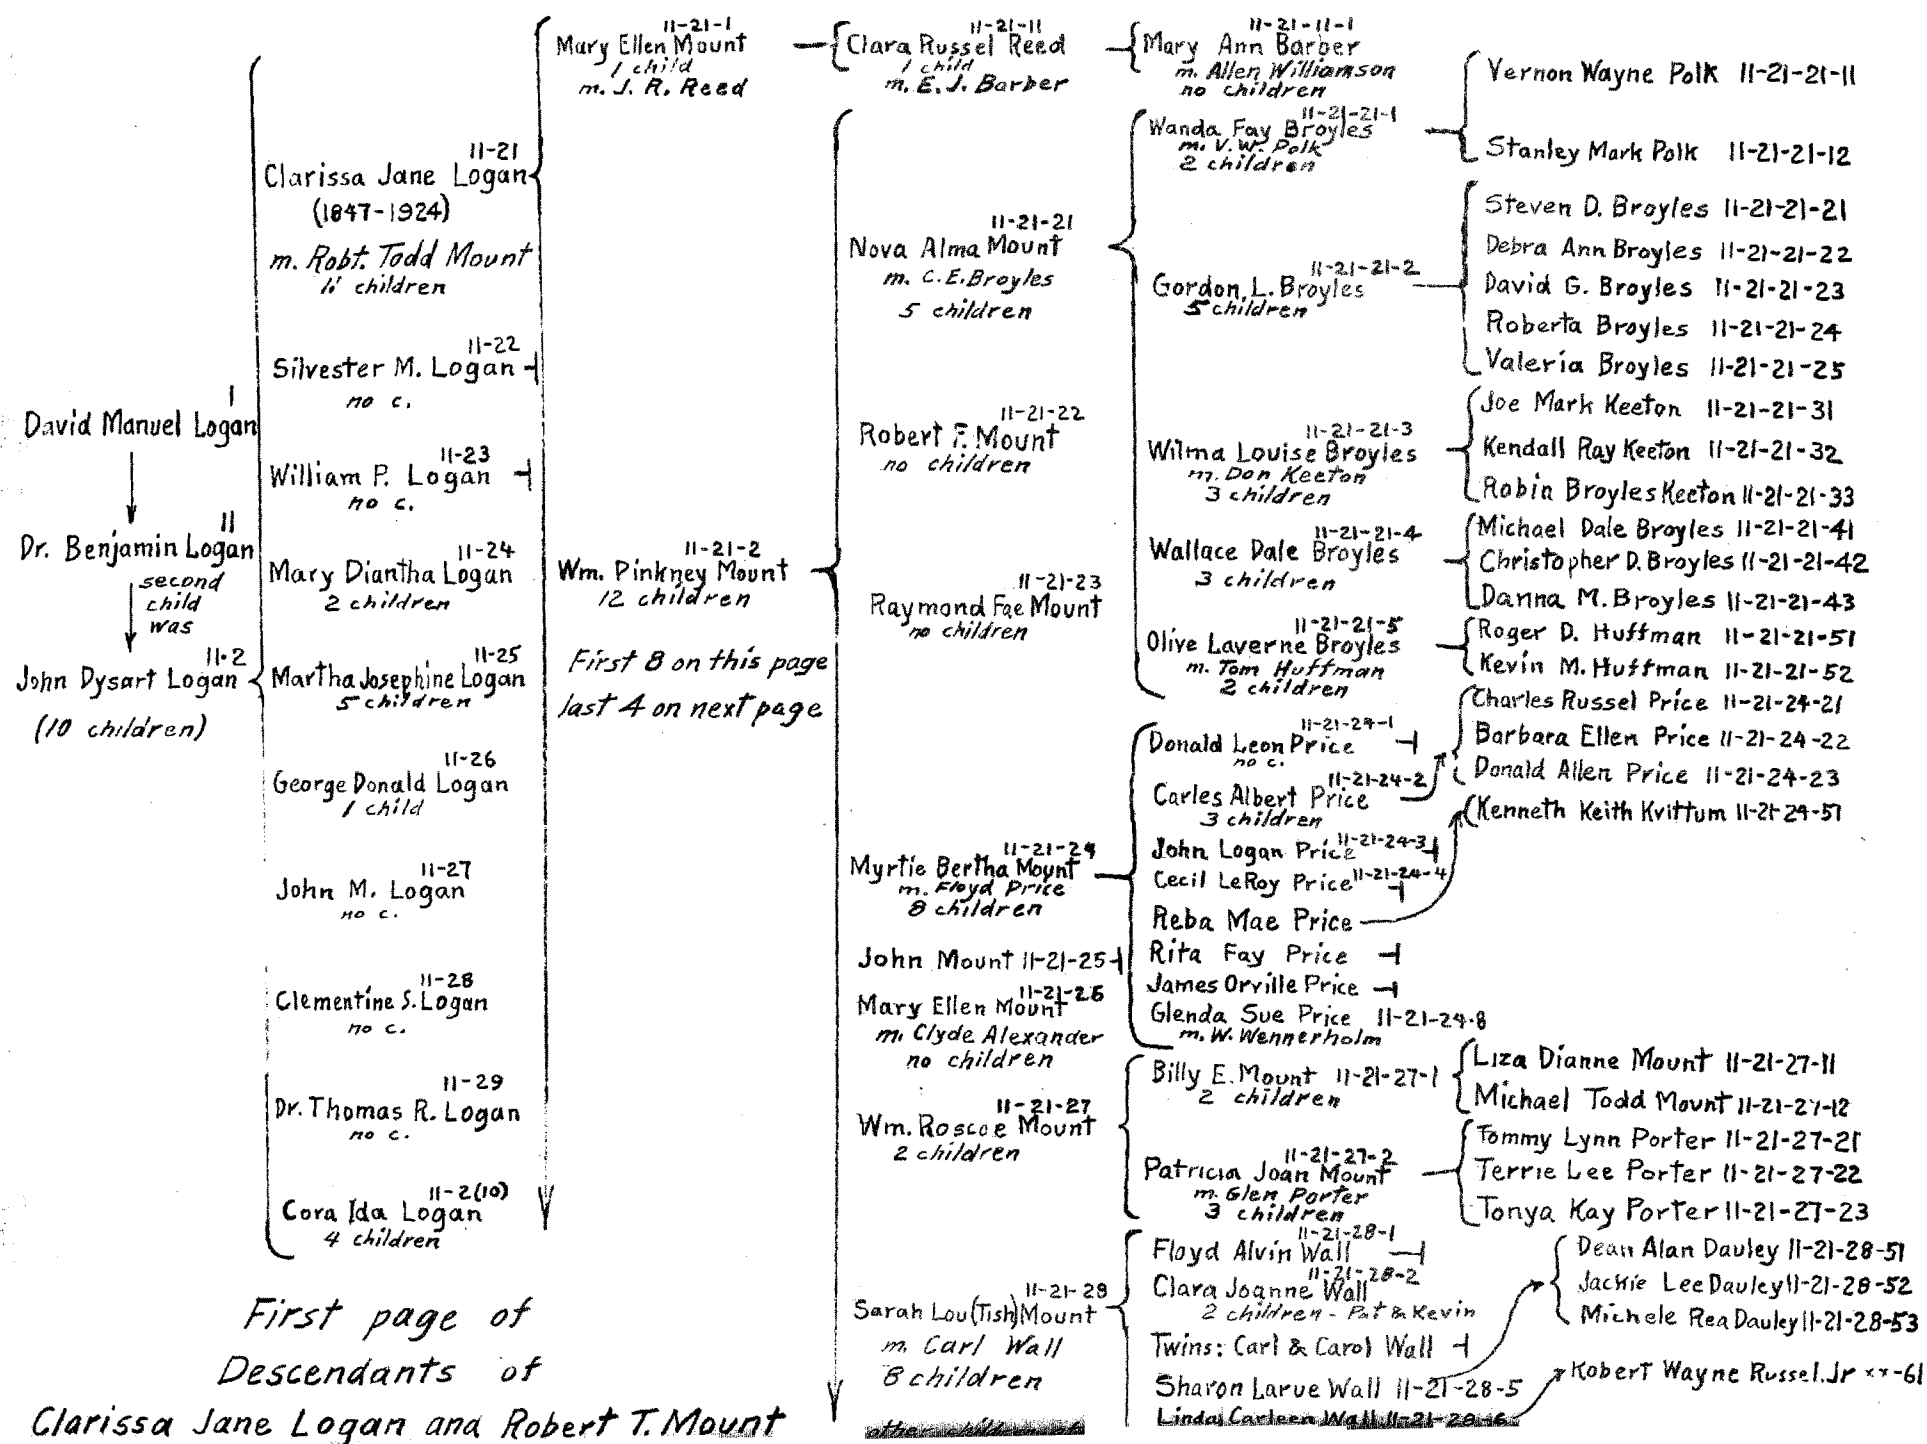 1
David Manuel Logan
11
Dr. Benjamin Logan
second
child
was
11-2
John Dysart Logan
(10 children)
11-21
Clarissa Jane Logan
(1847-1924)
m. Robt. Todd Mount
11 children
11-22
Silvester M. Logan
no c.
11-23
William P. Logan
no c.
11-24
Mary Diantha Logan
2 children
11-25
Martha Josephine Logan
5 children
11-26
George Donald Logan
1 child
11-27
John M. Logan
no c.
11-28
Clementine S. Logan
no c.
11-29
Dr. Thomas R. Logan
no c.
11-2(10)
Cora Ida Logan
4 children
First page of
Descendants of
Clarissa Jane Logan and Robert T. Mount
11-21-1
Mary Ellen Mount
1 child
m. J. R. Reed
11-21-2
Wm. Pinkney Mount
12 children
First 8 on this page
last 4 on next page
11-21-11
Clara Russel Reed
1 child
m. E. J. Barber
11-21-21
Nova Alma Mount
m. C. E. Broyles
5 children
11-21-22
Robert F. Mount
no children
11-21-23
Raymond Fae Mount
no children
11-21-24
Myrtie Bertha Mount
m. Floyd Price
8 children
John Mount 11-21-25
11-21-26
Mary Ellen Mount
m. Clyde Alexander
no children
11-21-27
Wm. Roscoe Mount
2 children
11-21-28
Sarah Lou (Tish) Mount
m. Carl Wall
8 children
other children
11-21-11-1
Mary Ann Barber
m. Allen Williamson
no children
11-21-21-1
Wanda Fay Broyles
m. V. W. Polk
2 children
11-21-21-2
Gordon, L. Broyles
5 children
11-21-21-3
Wilma Louise Broyles
m. Don Keeton
3 children
11-21-21-4
Wallace Dale Broyles
3 children
11-21-21-5
Olive Laverne Broyles
m. Tom Huffman
2 children
11-21-24-1
Donald Leon Price
no c.
11-21-24-2
Carles Albert Price
3 children
John Logan Price 11-21-24-3
Cecil LeRoy Price 11-21-24-4
Reba Mae Price
Rita Fay Price
James Orville Price
Glenda Sue Price 11-21-24-8
m. W. Wennerholm
Billy E. Mount 11-21-27-1
2 children
11-21-27-2
Patricia Joan Mount
m. Glen Porter
3 children
11-21-28-1
Floyd Alvin Wall
11-21-28-2
Clara Joanne Wall
2 children - Pat & Kevin
Twins: Carl & Carol Wall
Sharon Larue Wall 11-21-28-5
Linda Carleen Wall 11-21-28-6
Vernon Wayne Polk 11-21-21-11
Stanley Mark Polk 11-21-21-12
Steven D. Broyles 11-21-21-21
Debra Ann Broyles 11-21-21-22
David G. Broyles 11-21-21-23
Roberta Broyles 11-21-21-24
Valeria Broyles 11-21-21-25
Joe Mark Keeton 11-21-21-31
Kendall Ray Keeton 11-21-21-32
Robin Broyles Keeton 11-21-21-33
Michael Dale Broyles 11-21-21-41
Christopher D. Broyles 11-21-21-42
Danna M. Broyles 11-21-21-43
Roger D. Huffman 11-21-21-51
Kevin M. Huffman 11-21-21-52
Charles Russel Price 11-21-24-21
Barbara Ellen Price 11-21-24-22
Donald Allen Price 11-21-24-23
Kenneth Keith Kvittum 11-21-24-51
Liza Dianne Mount 11-21-27-11
Michael Todd Mount 11-21-27-12
Tommy Lynn Porter 11-21-27-21
Terrie Lee Porter 11-21-27-22
Tonya Kay Porter 11-21-27-23
Dean Alan Dauley 11-21-28-51
Jackie Lee Dauley 11-21-28-52
Michele Rea Dauley 11-21-28-53
Robert Wayne Russel. Jr xx-61